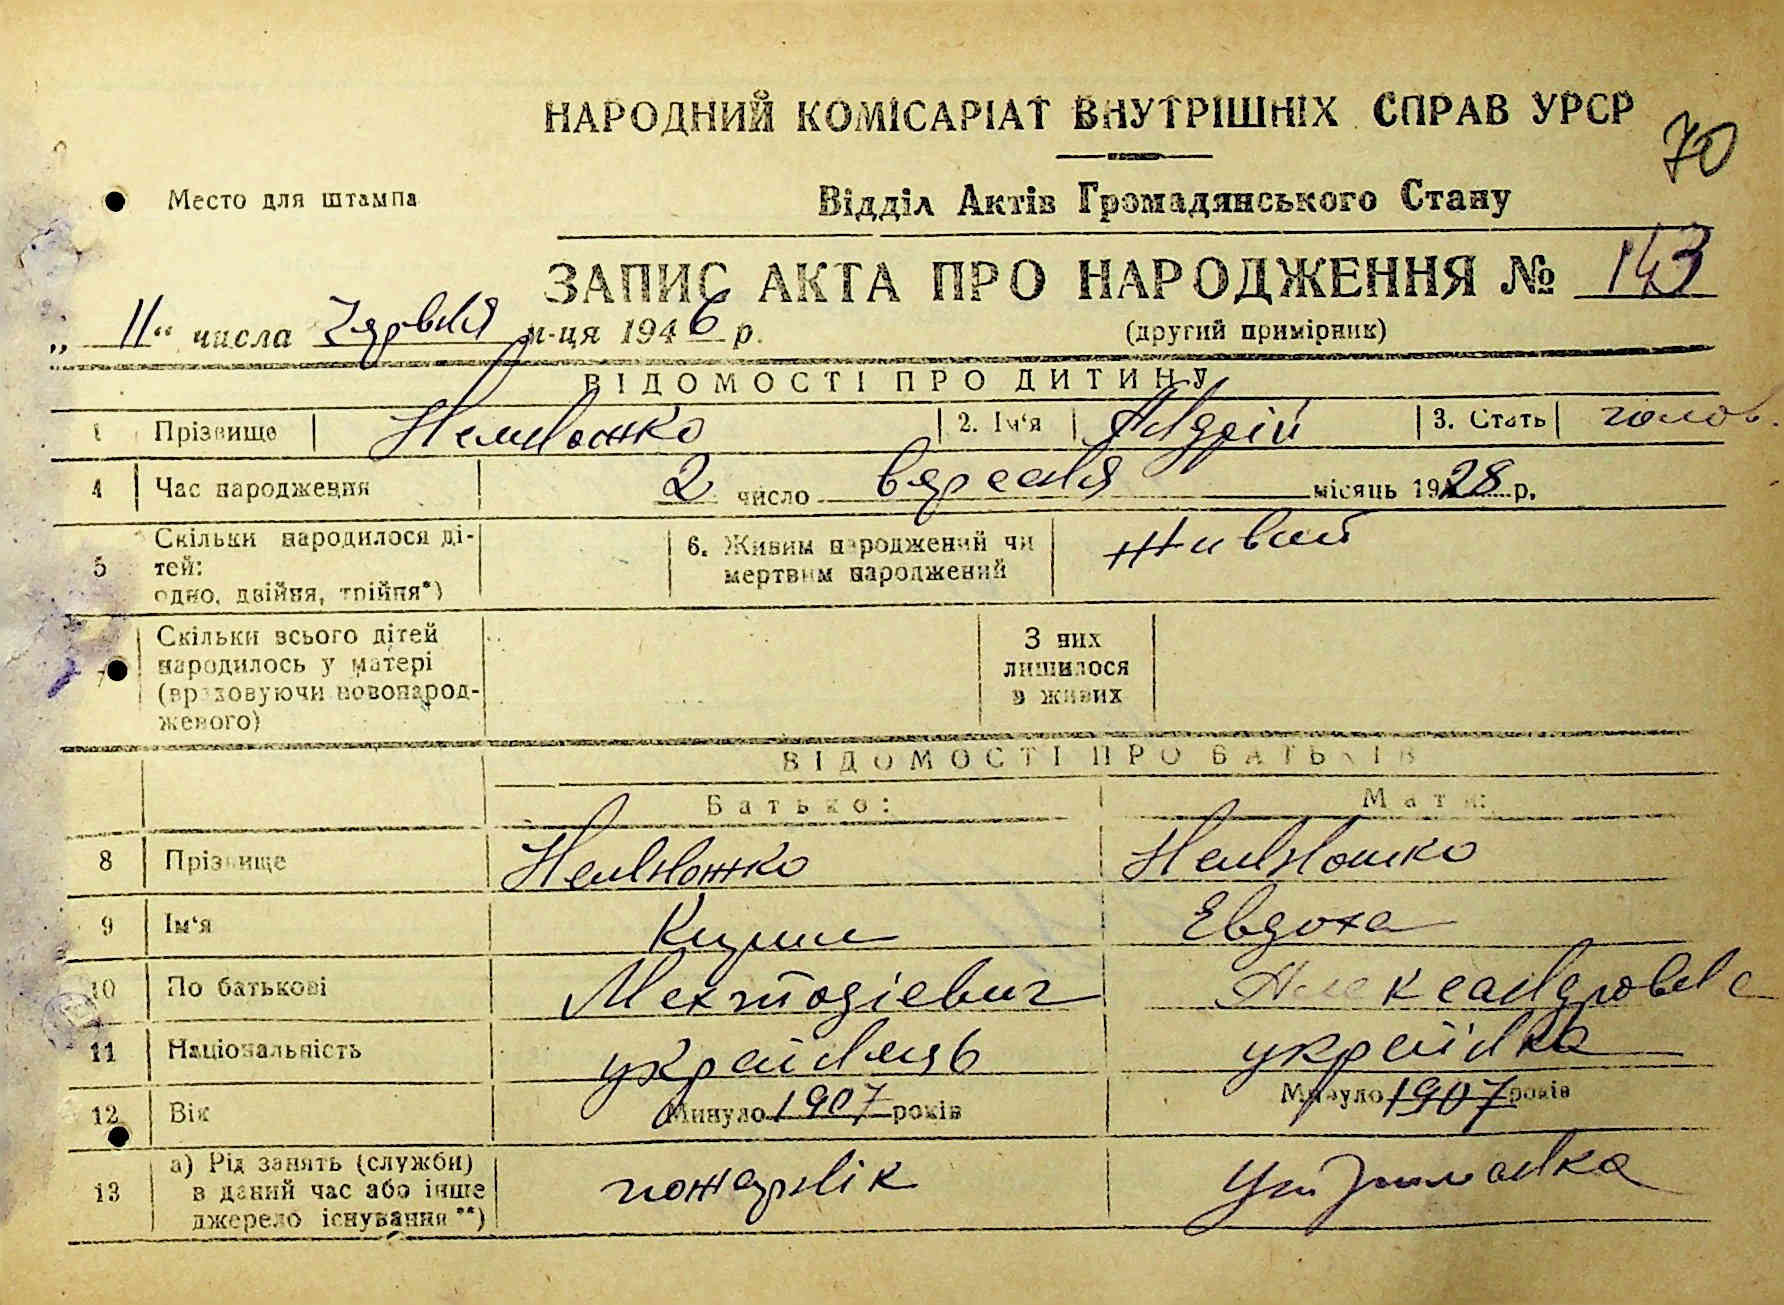 НАРОДНИЙ КОМІСАРІАТ ВНУТРІШНІХ СПРАВ УРСР
70
Место для штампа
Відділ Актів Громадянського Стану
ЗАПИС АКТА ПРО НАРОДЖЕННЯ № 143
„ 11 “ числа червня м-ця 1946 р.
(другий примірник)
ВІДОМОСТІ ПРО ДИТИНУ
1 Прізвище 2. Ім‘я Андрій 3. Стать
4 Час народження 2 число вересня місяць 1928 р.
5 Скільки народилося ді-
тей:
одно, двійня, трійня*)
6. Живим народжений чи
мертвим народжений
живий
7 Скільки всього дітей
народилось у матері
(враховуючи новонарод-
женого)
З них
лишилося
в живих
ВІДОМОСТІ ПРО БАТЬКІВ
Батько: Мати:
8 Прізвище
9 Ім‘я Кирил Евдоха
10 По батькові Александровна
11 Національність українець українка
12 Вік Минуло 1907 років Минуло 1907 років
13 а) Рід занять (служби)
в даний час або інше
джерело існування**)
пожарнік